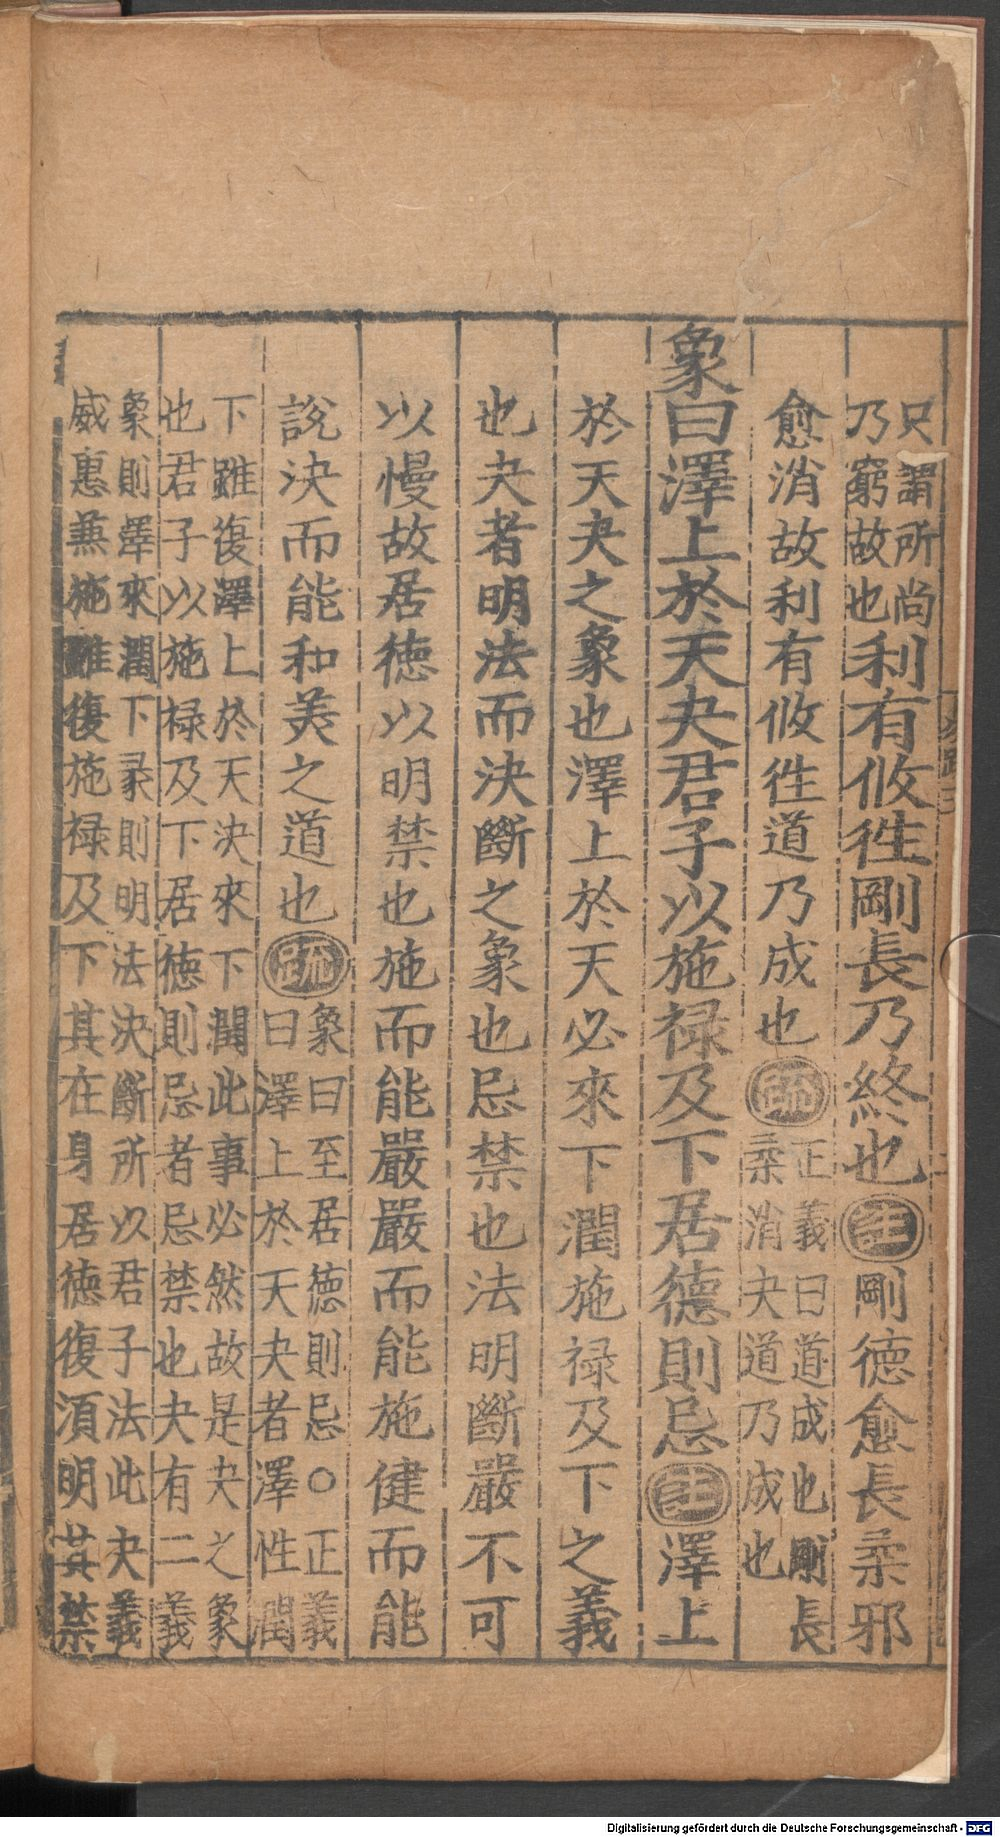 只謂所尚
乃窮故也利有攸徃剛長乃終也註剛德愈長柔邪
愈消故利有攸徃道乃成也疏正義曰道成也剛長
柔消夬道乃成也
象曰澤上於天夬君子以施禄及下居德則忌註澤上
於天夬之象也澤上於天必來下潤施禄及下之義
也夬者明法而決斷之象也忌禁也法明斷嚴不可
以慢故居德以明禁也施而能嚴嚴而能施健而能
說決而能和美之道也疏象曰至居德則忌○正義
曰澤上於天夬者澤性潤
下雖復澤上於天決來下潤此事必然故是夬之象
也君子以施禄及下居德則忌者忌禁也夬有二義
象則澤來潤下彖則明法決斷所以君子法此夬義
威惠兼施雖復施禄及下其在身居德復須明其禁
Digitalisierung gefördert durch die Deutsche Forschungsgemeinschaft - DFG